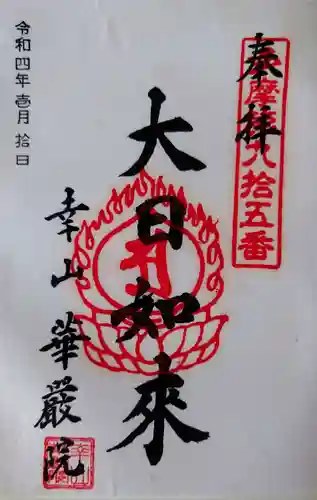 奉拝
多摩八拾五番
大日如來
幸山
華嚴院
令和四年壱月拾日